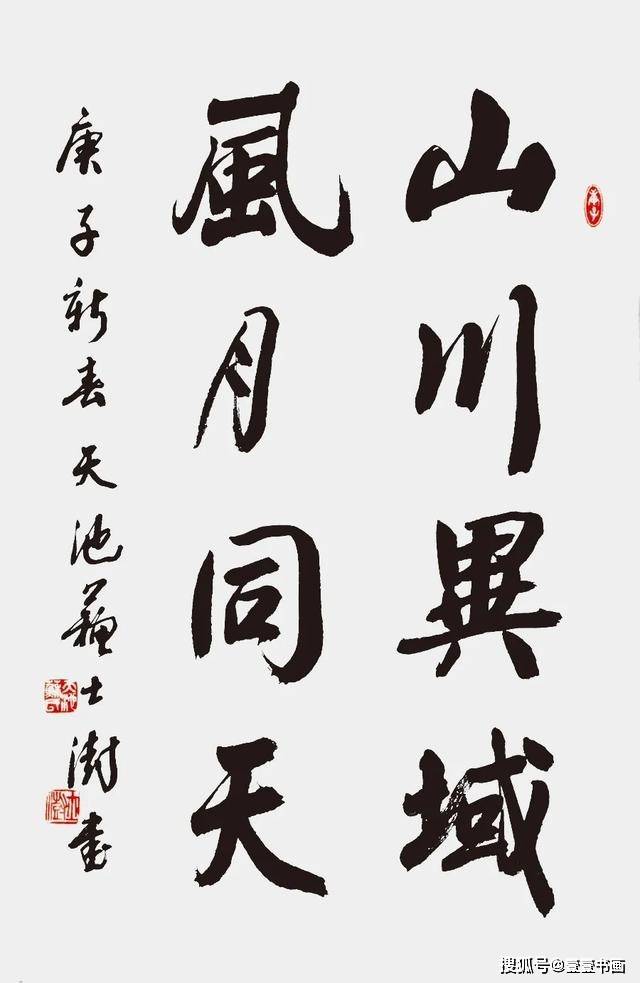 山川異域
風月同天
庚子新春天池蘇士澍書
搜狐号@壹壹书画